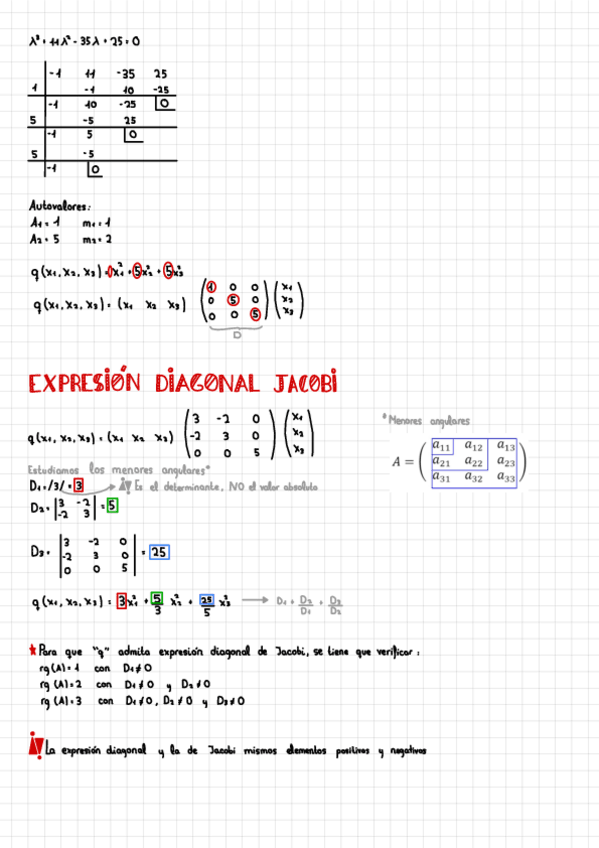 λ³ + 11λ² - 35λ + 25 = 0
-1 11 -35 25
1 -1 10 -25
-1 10 -25 0
5 -5 25
-1 5 0
5 -5
-1 0
Autovalores:
λ1 = 1 m1 = 1
λ2 = 5 m2 = 2
q(x1, x2, x3) = 1x1² + 5x2² + 5x3²
q(x1, x2, x3) = (x1 x2 x3) (1 0 0) (x1)
(0 5 0) (x2)
(0 0 5) (x3)
D
EXPRESIÓN DIAGONAL JACOBI
q(x1, x2, x3) = (x1 x2 x3) (3 -2 0) (x1)
(-2 3 0) (x2)
(0 0 5) (x3)
*Menores angulares
A = (a11 a12 a13)
(a21 a22 a23)
(a31 a32 a33)
Estudiamos los menores angulares*
D1 = /3/ = 3 → ¡! Es el determinante, NO el valor absoluto
D2 = |3 -2| = 5
|-2 3|
D3 = |3 -2 0|
|-2 3 0| = 25
|0 0 5|
q(x1, x2, x3) = 3x1² + 5/3 x2² + 25/5 x3² → D1 + D2/D1 + D3/D2
★ Para que "q" admita expresión diagonal de Jacobi, se tiene que verificar:
rg(A)=1 con D1≠0
rg(A)=2 con D1≠0 y D2≠0
rg(A)=3 con D1≠0, D2≠0 y D3≠0
¡! La expresión diagonal y la de Jacobi mismos elementos positivos y negativos